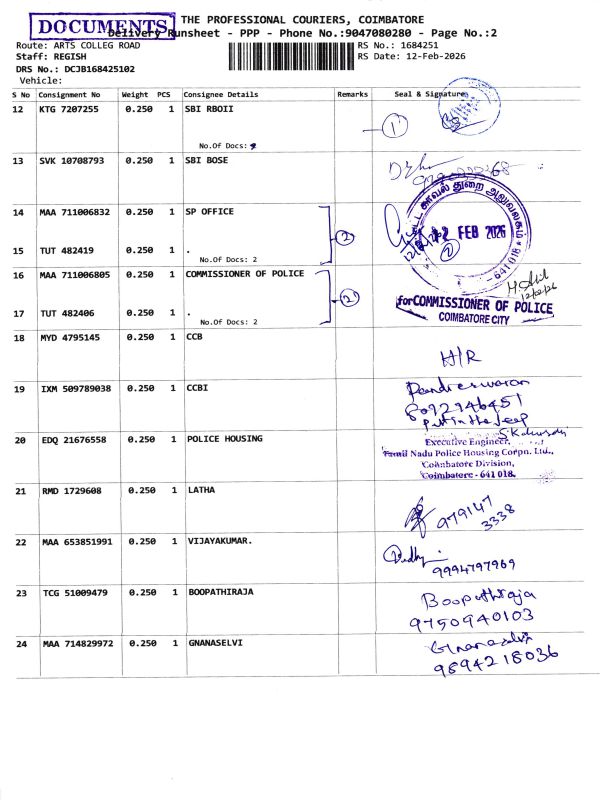 DOCUMENTS
THE PROFESSIONAL COURIERS, COIMBATORE
Delivery Runsheet - PPP - Phone No.:9047080280 - Page No.:2
Route: ARTS COLLEG ROAD
RS No.: 1684251
Staff: REGISH
RS Date: 12-Feb-2026
DRS No.: DCJB168425102
Vehicle:
S No Consignment No Weight PCS Consignee Details Remarks Seal & Signature
12 KTG 7207255 0.250 1 SBI RBOII
1
No.Of Docs:
13 SVK 10708793 0.250 1 SBI BOSE
14 MAA 711006832 0.250 1 SP OFFICE
காவல் துறை அலுவலகம்
2 FEB 2026
641 018
2
15 TUT 482419 0.250 1 .
No.Of Docs: 2
16 MAA 711006805 0.250 1 COMMISSIONER OF POLICE
12/02/26
2
for COMMISSIONER OF POLICE
COIMBATORE CITY
17 TUT 482406 0.250 1 .
No.Of Docs: 2
18 MYD 4795145 0.250 1 CCB
H/R
19 IXM 509789038 0.250 1 CCBI
Pandieswaran
8092946451
Put in the Jeep
20 EDQ 21676558 0.250 1 POLICE HOUSING
Executive Engineer,
Tamil Nadu Police Housing Corpn. Ltd.,
Coimbatore Division,
Coimbatore - 641 018.
21 RMD 1729608 0.250 1 LATHA
979147
3338
22 MAA 653851991 0.250 1 VIJAYAKUMAR.
9994797969
23 TCG 51009479 0.250 1 BOOPATHIRAJA
Boopathiraja
9750940103
24 MAA 714829972 0.250 1 GNANASELVI
Gnanaselvi
9894218036